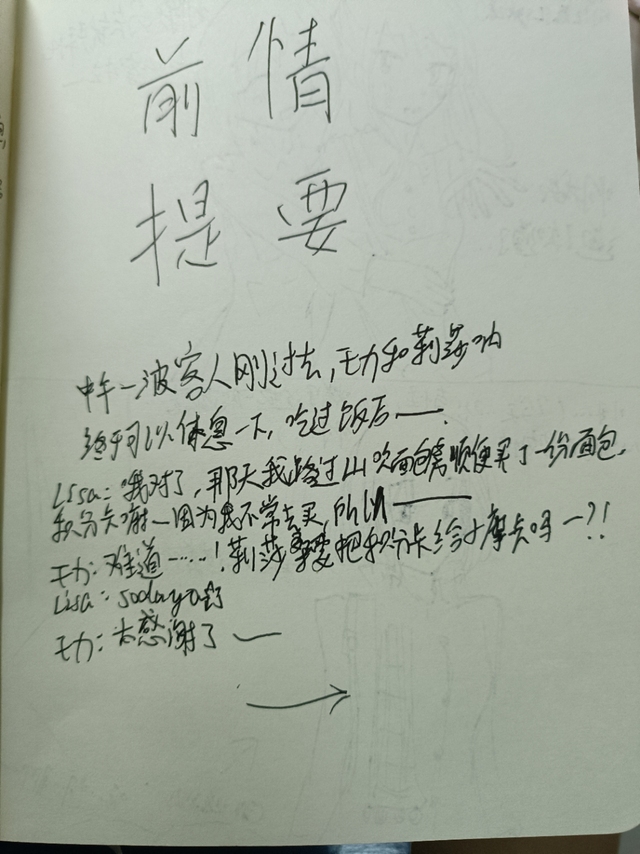 前情
提要
中午一波客人刚过去，モカ和莉莎呐
终于可以休息一下，吃过饭后——
Lisa：哦对了，那天我路过山吹面包房顺便买了一份面包，
积分卡谢—因为我不常去买，所以——
モカ：难道……！莉莎要把积分卡给摩卡吗—?!
Lisa：sodayo
モカ：太感谢了—